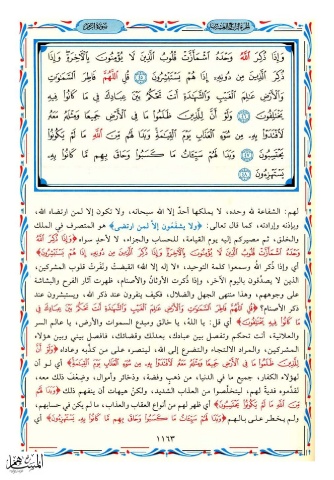 سورة الزمر
وَإِذَا ذُكِرَ اللَّهُ وَحْدَهُ اشْمَأَزَّتْ قُلُوبُ الَّذِينَ لَا يُؤْمِنُونَ بِالْآخِرَةِ وَإِذَا
ذُكِرَ الَّذِينَ مِن دُونِهِ إِذَا هُمْ يَسْتَبْشِرُونَ ٤٥ قُلِ اللَّهُمَّ فَاطِرَ السَّمَاوَاتِ
وَالْأَرْضِ عَالِمَ الْغَيْبِ وَالشَّهَادَةِ أَنتَ تَحْكُمُ بَيْنَ عِبَادِكَ فِي مَا كَانُوا فِيهِ
يَخْتَلِفُونَ ٤٦ وَلَوْ أَنَّ لِلَّذِينَ ظَلَمُوا مَا فِي الْأَرْضِ جَمِيعًا وَمِثْلَهُ مَعَهُ
لَافْتَدَوْا بِهِ مِن سُوءِ الْعَذَابِ يَوْمَ الْقِيَامَةِ وَبَدَا لَهُم مِّنَ اللَّهِ مَا لَمْ يَكُونُوا
يَحْتَسِبُونَ ٤٧ وَبَدَا لَهُمْ سَيِّئَاتُ مَا كَسَبُوا وَحَاقَ بِهِم مَّا كَانُوا بِهِ
يَسْتَهْزِئُونَ ٤٨
لهم: الشفاعة لله وحده، لا يملكها أحدٌ إلا الله سبحانه، ولا تكون إلا لمن ارتضاه الله،
وبإذنه وإرادته، كما قال تعالى: ﴿ولا يشفعون إلا لمن ارتضى﴾ هو المتصرف في الملك
والخلق، ثم مصيركم إليه يوم القيامة، للحساب والجزاء، لا لأحد سواه ﴿وَإِذَا ذُكِرَ اللَّهُ
وَحْدَهُ اشْمَأَزَّتْ قُلُوبُ الَّذِينَ لَا يُؤْمِنُونَ بِالْآخِرَةِ وَإِذَا ذُكِرَ الَّذِينَ مِن دُونِهِ إِذَا هُمْ يَسْتَبْشِرُونَ﴾
أي وإذا ذُكر الله وسمعوا كلمة التوحيد، «لا إله إلا الله» انقبضت ونفرت قلوب المشركين،
الذين لا يصدّقون باليوم الآخر، وإذا ذُكرت الأوثان والأصنام، ظهرت آثار الفرح والبشاشة
على وجوههم، وهذا منتهى الجهل والضلال، فكيف ينفرون عند ذكر الله، ويستبشرون عند
ذكر الأصنام؟ ﴿قُلِ اللَّهُمَّ فَاطِرَ السَّمَاوَاتِ وَالْأَرْضِ عَالِمَ الْغَيْبِ وَالشَّهَادَةِ أَنتَ تَحْكُمُ بَيْنَ عِبَادِكَ فِي
مَا كَانُوا فِيهِ يَخْتَلِفُونَ﴾ أي قل: يا الله، يا خالق ومبدع السموات والأرض، يا عالم السر
والعلانية، أنت تحكم وتفصل بين عبادك، بعدلك وقضائك، فافصل بيني وبين هؤلاء
المشركين، والمراد الالتجاء والتضرع إلى الله، لينصره على من كذّبه وعاداه ﴿وَلَوْ أَنَّ
لِلَّذِينَ ظَلَمُوا مَا فِي الْأَرْضِ جَمِيعًا وَمِثْلَهُ مَعَهُ لَافْتَدَوْا بِهِ مِن سُوءِ الْعَذَابِ يَوْمَ الْقِيَامَةِ﴾ أي لو أن
لهؤلاء الكفار، جميع ما في الدنيا، من ذهب وفضة، وذخائر وأموال، وضعف ذلك معه،
لقدّموه فدية لهم، ليتخلّصوا من العذاب الشديد، ولكنْ هيهات أن ينفعهم ذلك ﴿وَبَدَا لَهُم
مِّنَ اللَّهِ مَا لَمْ يَكُونُوا يَحْتَسِبُونَ﴾ أي ظهر لهم من أنواع العقاب والعذاب، ما لم يكن في حسابهم،
ولم يخطر على بالهم ﴿وَبَدَا لَهُمْ سَيِّئَاتُ مَا كَسَبُوا وَحَاقَ بِهِم مَّا كَانُوا بِهِ يَسْتَهْزِئُونَ﴾ أي
١١٦٣